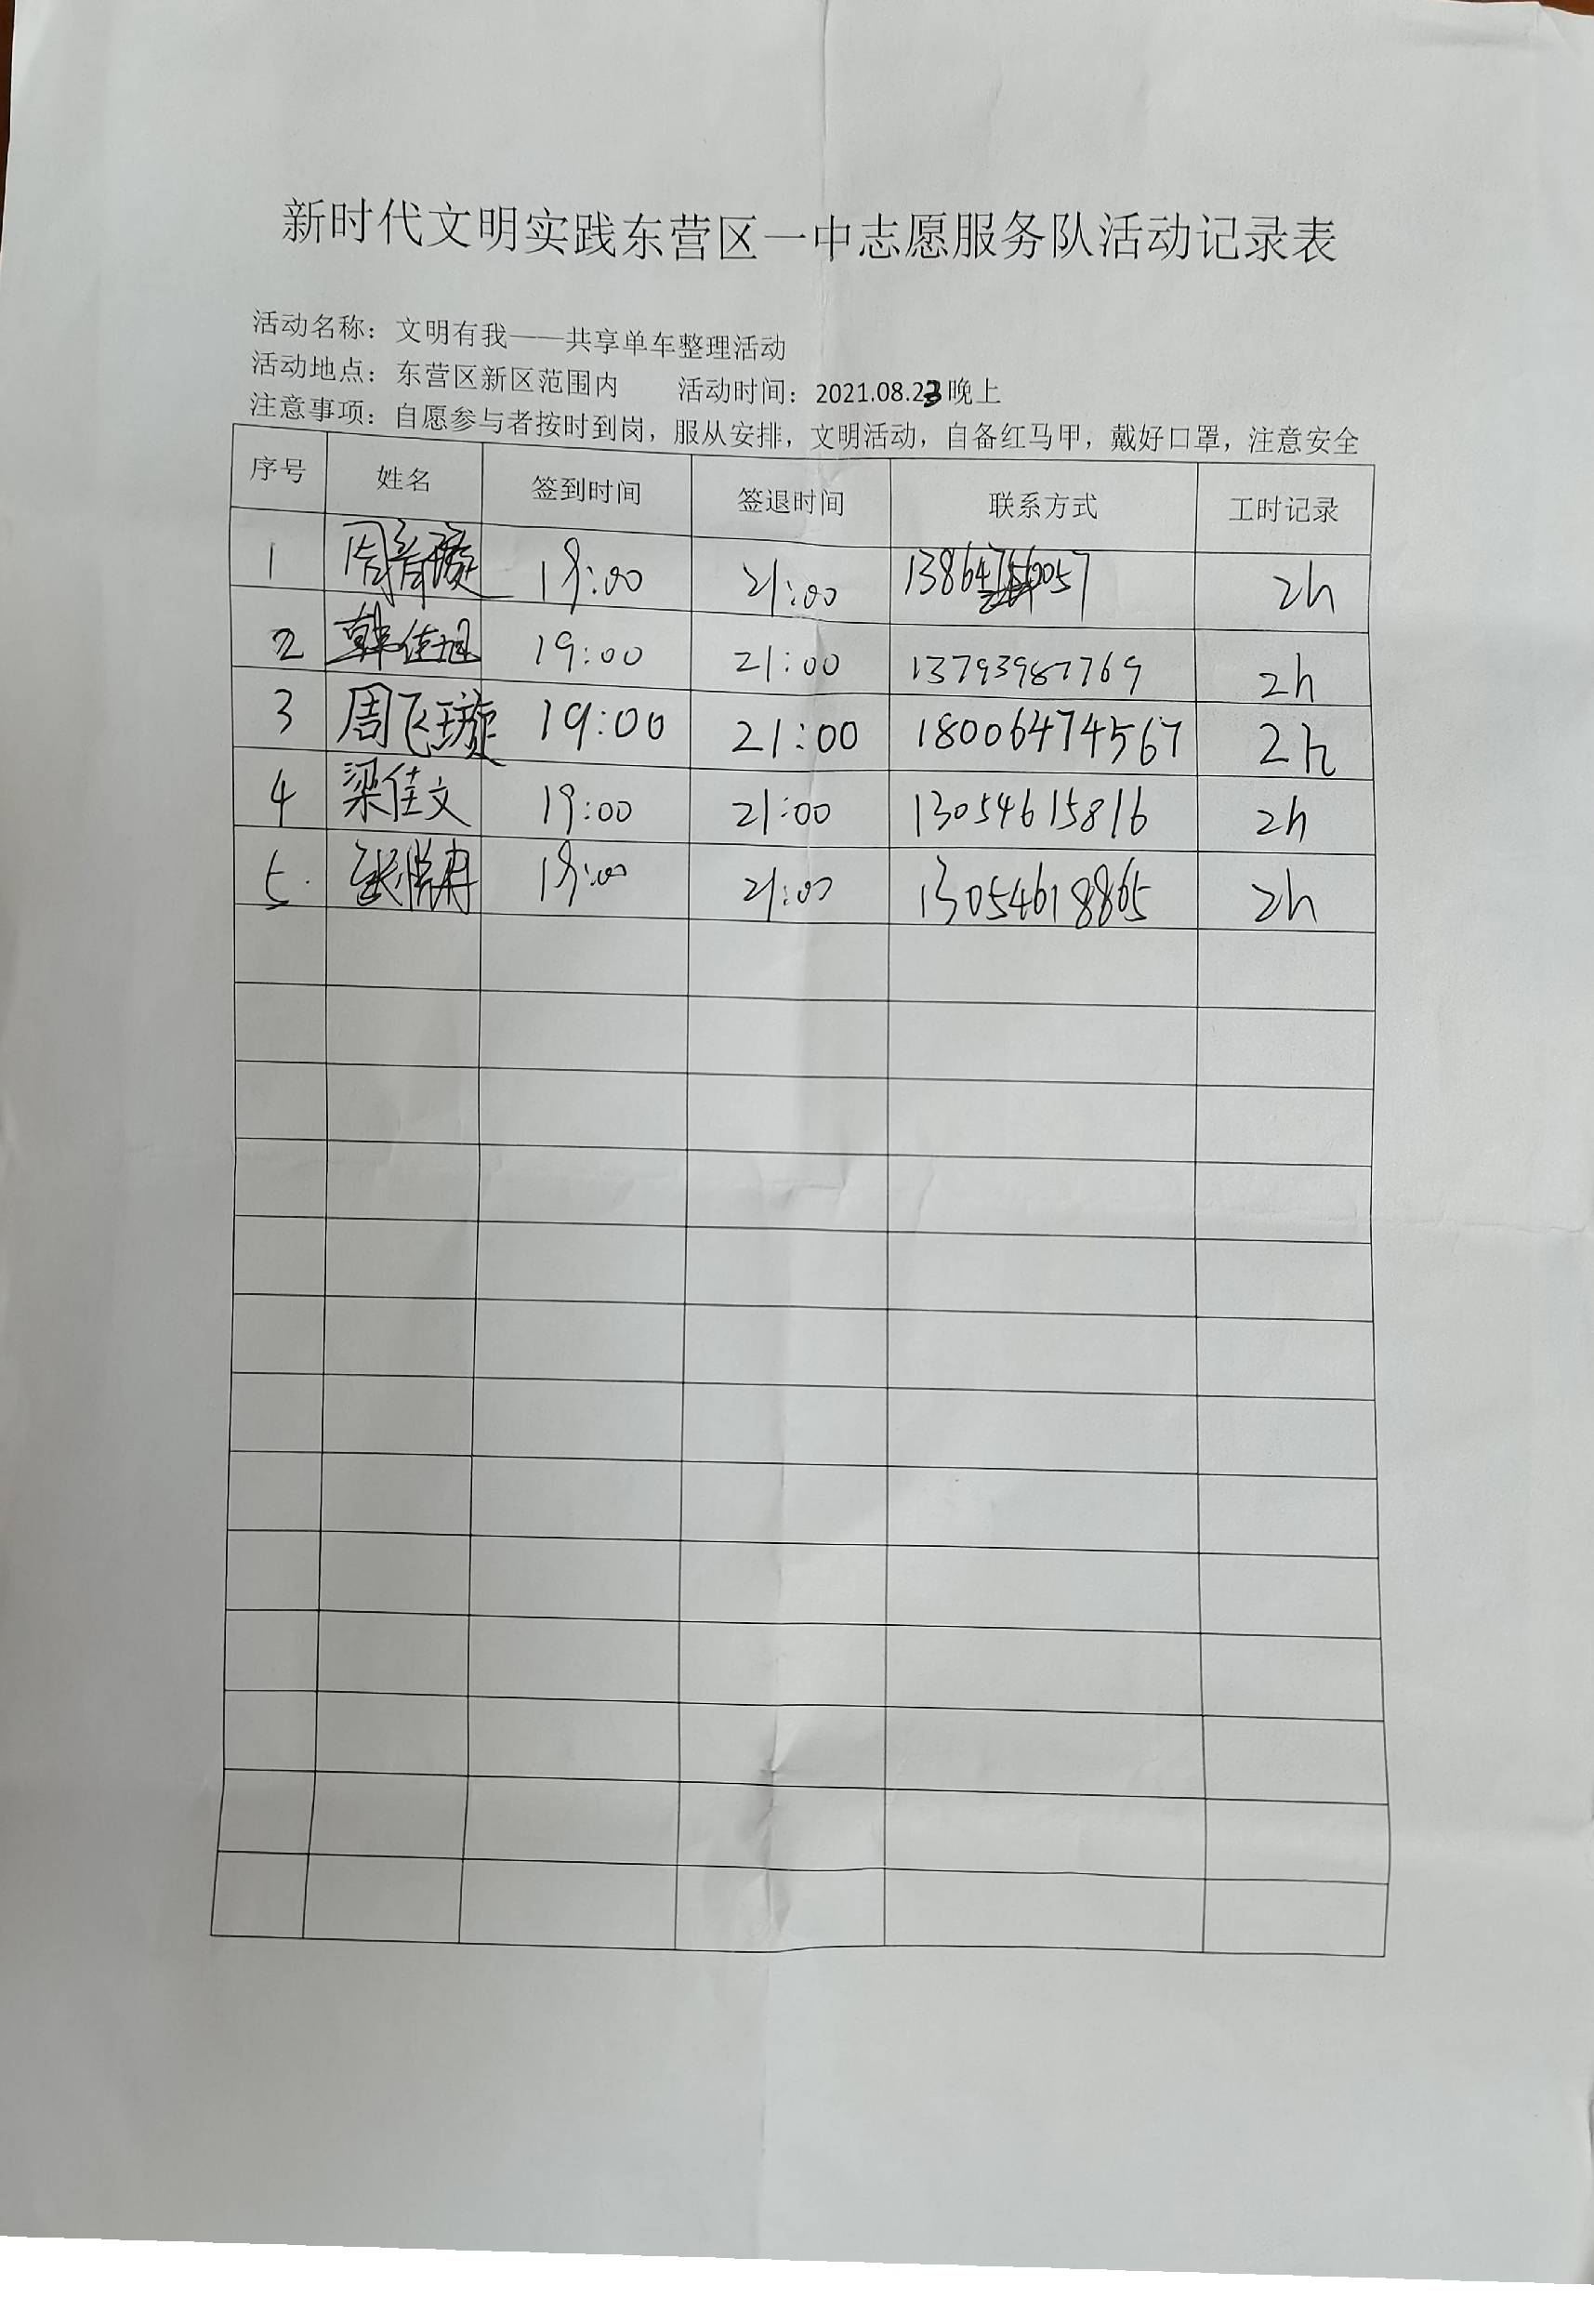 新时代文明实践东营区一中志愿服务队活动记录表
活动名称：文明有我——共享单车整理活动
活动地点：东营区新区范围内 活动时间：2021.08.23晚上
注意事项：自愿参与者按时到岗，服从安排，文明活动，自备红马甲，戴好口罩，注意安全
序号 姓名 签到时间 签退时间 联系方式 工时记录
1 周 19:00 21:00 2h
2 韩佳旭 19:00 21:00 13793987769 2h
3 周飞璇 19:00 21:00 18006474567 2h
4 梁佳文 19:00 21:00 13054615816 2h
5. 19:00 21:00 13054618865 2h